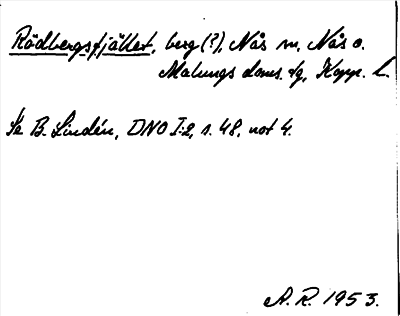 Rödbergsfjället, berg (?), Nås sn, Nås o.
Malungs doms. tg, Kopp. L.
Se B. Lindén, DNO I:2, s. 48, not 4.
A. R. 1953.